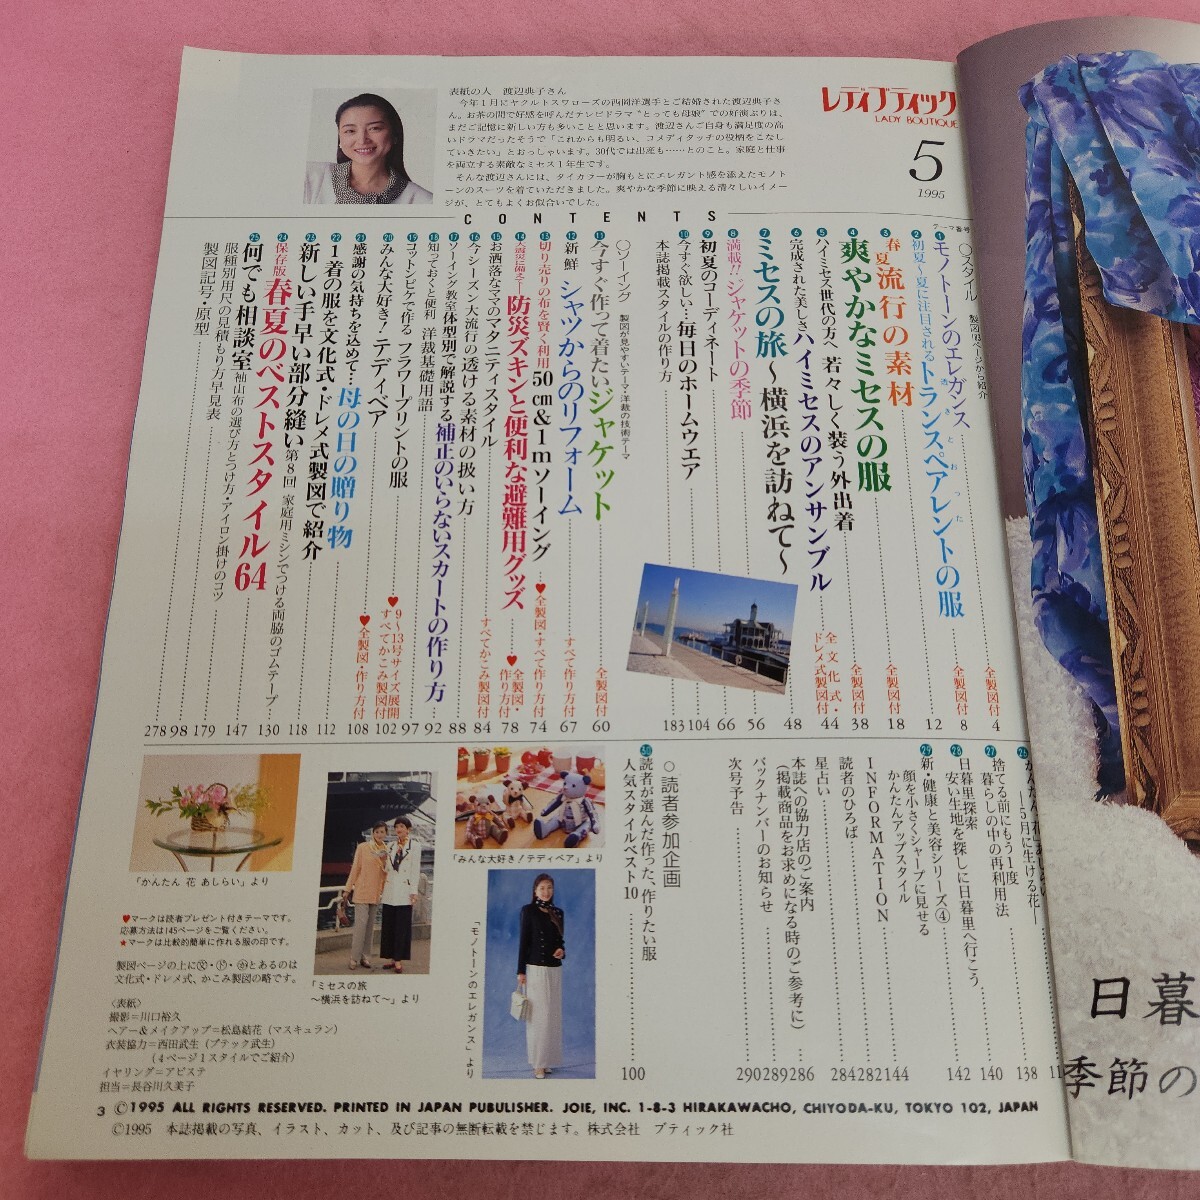 表紙の人　渡辺典子さん
今年1月にヤクルトスワローズの西岡洋選手とご結婚された渡辺典子さ
ん。お茶の間で好感を呼んだテレビドラマ“とっても母娘”での好演ぶりは、
まだご記憶に新しい方も多いことと思います。渡辺さんご自身も満足度の高
いドラマだったそうで「これからも明るい、コメディタッチの役柄をこなし
ていきたい」とおっしゃいます。30代では出産も……とのこと。家庭と仕事
を両立する素敵なミセス1年生です。
そんな渡辺さんには、タイカラーが胸もとにエレガント感を添えたモノト
ーンのスーツを着ていただきました。爽やかな季節に映える清々しいイメー
ジが、とてもよくお似合いでした。
レディブティック
LADY BOUTIQUE
5
1995
CONTENTS
テーマ番号
○スタイル　製図図ページから紹介
1 モノトーンのエレガンス 全製図付 4
2 初夏〜夏に注目されるトランスペアレントの服 全製図付 8
透きとおった
12
3 春夏流行の素材 全製図付 18
4 爽やかなミセスの服 全製図付 38
5 ハイミセス世代の方へ 若々しく装う外出着 全文化式・ドレメ式製図付 44
6 完成された美しさハイミセスのアンサンブル 48
7 ミセスの旅〜横浜を訪ねて〜 56
8 満載!!ジャケットの季節 66
9 初夏のコーディネート 104
10 今すぐ欲しい…毎日のホームウエア 183
本誌掲載スタイルの作り方
○ソーイング　製図が見やすいテーマ・洋裁の技術テーマ
11 今すぐ作って着たいジャケット 全製図付 60
12 新鮮 シャツからのリフォーム すべて作り方付 67
13 切り売りの布を賢く利用 50cm&1mソーイング ♥全製図・すべて作り方付 74
14 大震災に備えて─防災ズキンと便利な避難用グッズ ♥全製図・作り方付 78
15 お洒落なママのマタニティスタイル すべてかこみ製図付 84
16 今シーズン大流行の透ける素材の扱い方 88
17 ソーイング教室 体型別で解説する補正のいらないスカートの作り方 92
18 知っておくと便利 洋裁基礎用語 97
19 コットンピケで作る フラワープリントの服 ♥9〜13号サイズ展開 すべてかこみ製図付 102
20 みんな大好き!テディベア ♥全製図・作り方付 108
21 感謝の気持ちを込めて…母の日の贈り物
22 1着の服を文化式・ドレメ式製図で紹介 112
23 新しい手早い部分縫い 第8回 家庭用ミシンでつける両脇のゴムテープ 118
24 保存版 春夏のベストスタイル64 130
25 何でも相談室 袖山布の選び方とつけ方・アイロン掛けのコツ 147
服種別用尺の見積もり方早見表 179
製図記号・原型 98
278
―5月に生ける花― 138
27 捨てる前にもう1度
暮らしの中の再利用法 140
28 日暮里探索
安い生地を探しに日暮里へ行こう 142
29 新・健康と美容シリーズ④
顔を小さくシャープに見せる
かんたんアップスタイル 144
INFORMATION 282
読者のひろば 284
星占い
本誌への協力店のご案内
(掲載商品をお求めになる時のご参考に) 286
バックナンバーのお知らせ 289
次号予告 290
○読者参加企画
30 読者が選んだ作った、作りたい服
人気スタイルベスト10 100
「かんたん 花 あしらい」より
「みんな大好き!テディベア」より
「ミセスの旅
〜横浜を訪ねて〜」より
「モノトーンのエレガンス」より
♥マークは読者プレゼント付きテーマです。
応募方法は145ページをご覧ください。
★マークは比較的簡単に作れる服の印です。
製図ページの上に㊛・㋣・㋕とあるのは
文化式・ドレメ式、かこみ製図の略です。
〈表紙〉
撮影=川口裕久
ヘアー&メイクアップ=松島結花(マスキュラン)
衣装協力=西田武生(ブテック武生)
(4ページ1スタイルでご紹介)
イヤリング=アビステ
担当=長谷川久美子
3 ©1995 ALL RIGHTS RESERVED. PRINTED IN JAPAN PUBULISHER. JOIE, INC. 1-8-3 HIRAKAWACHO, CHIYODA-KU, TOKYO 102, JAPAN
©1995 本誌掲載の写真、イラスト、カット、及び記事の無断転載を禁じます。株式会社 ブティック社
日暮
季節の